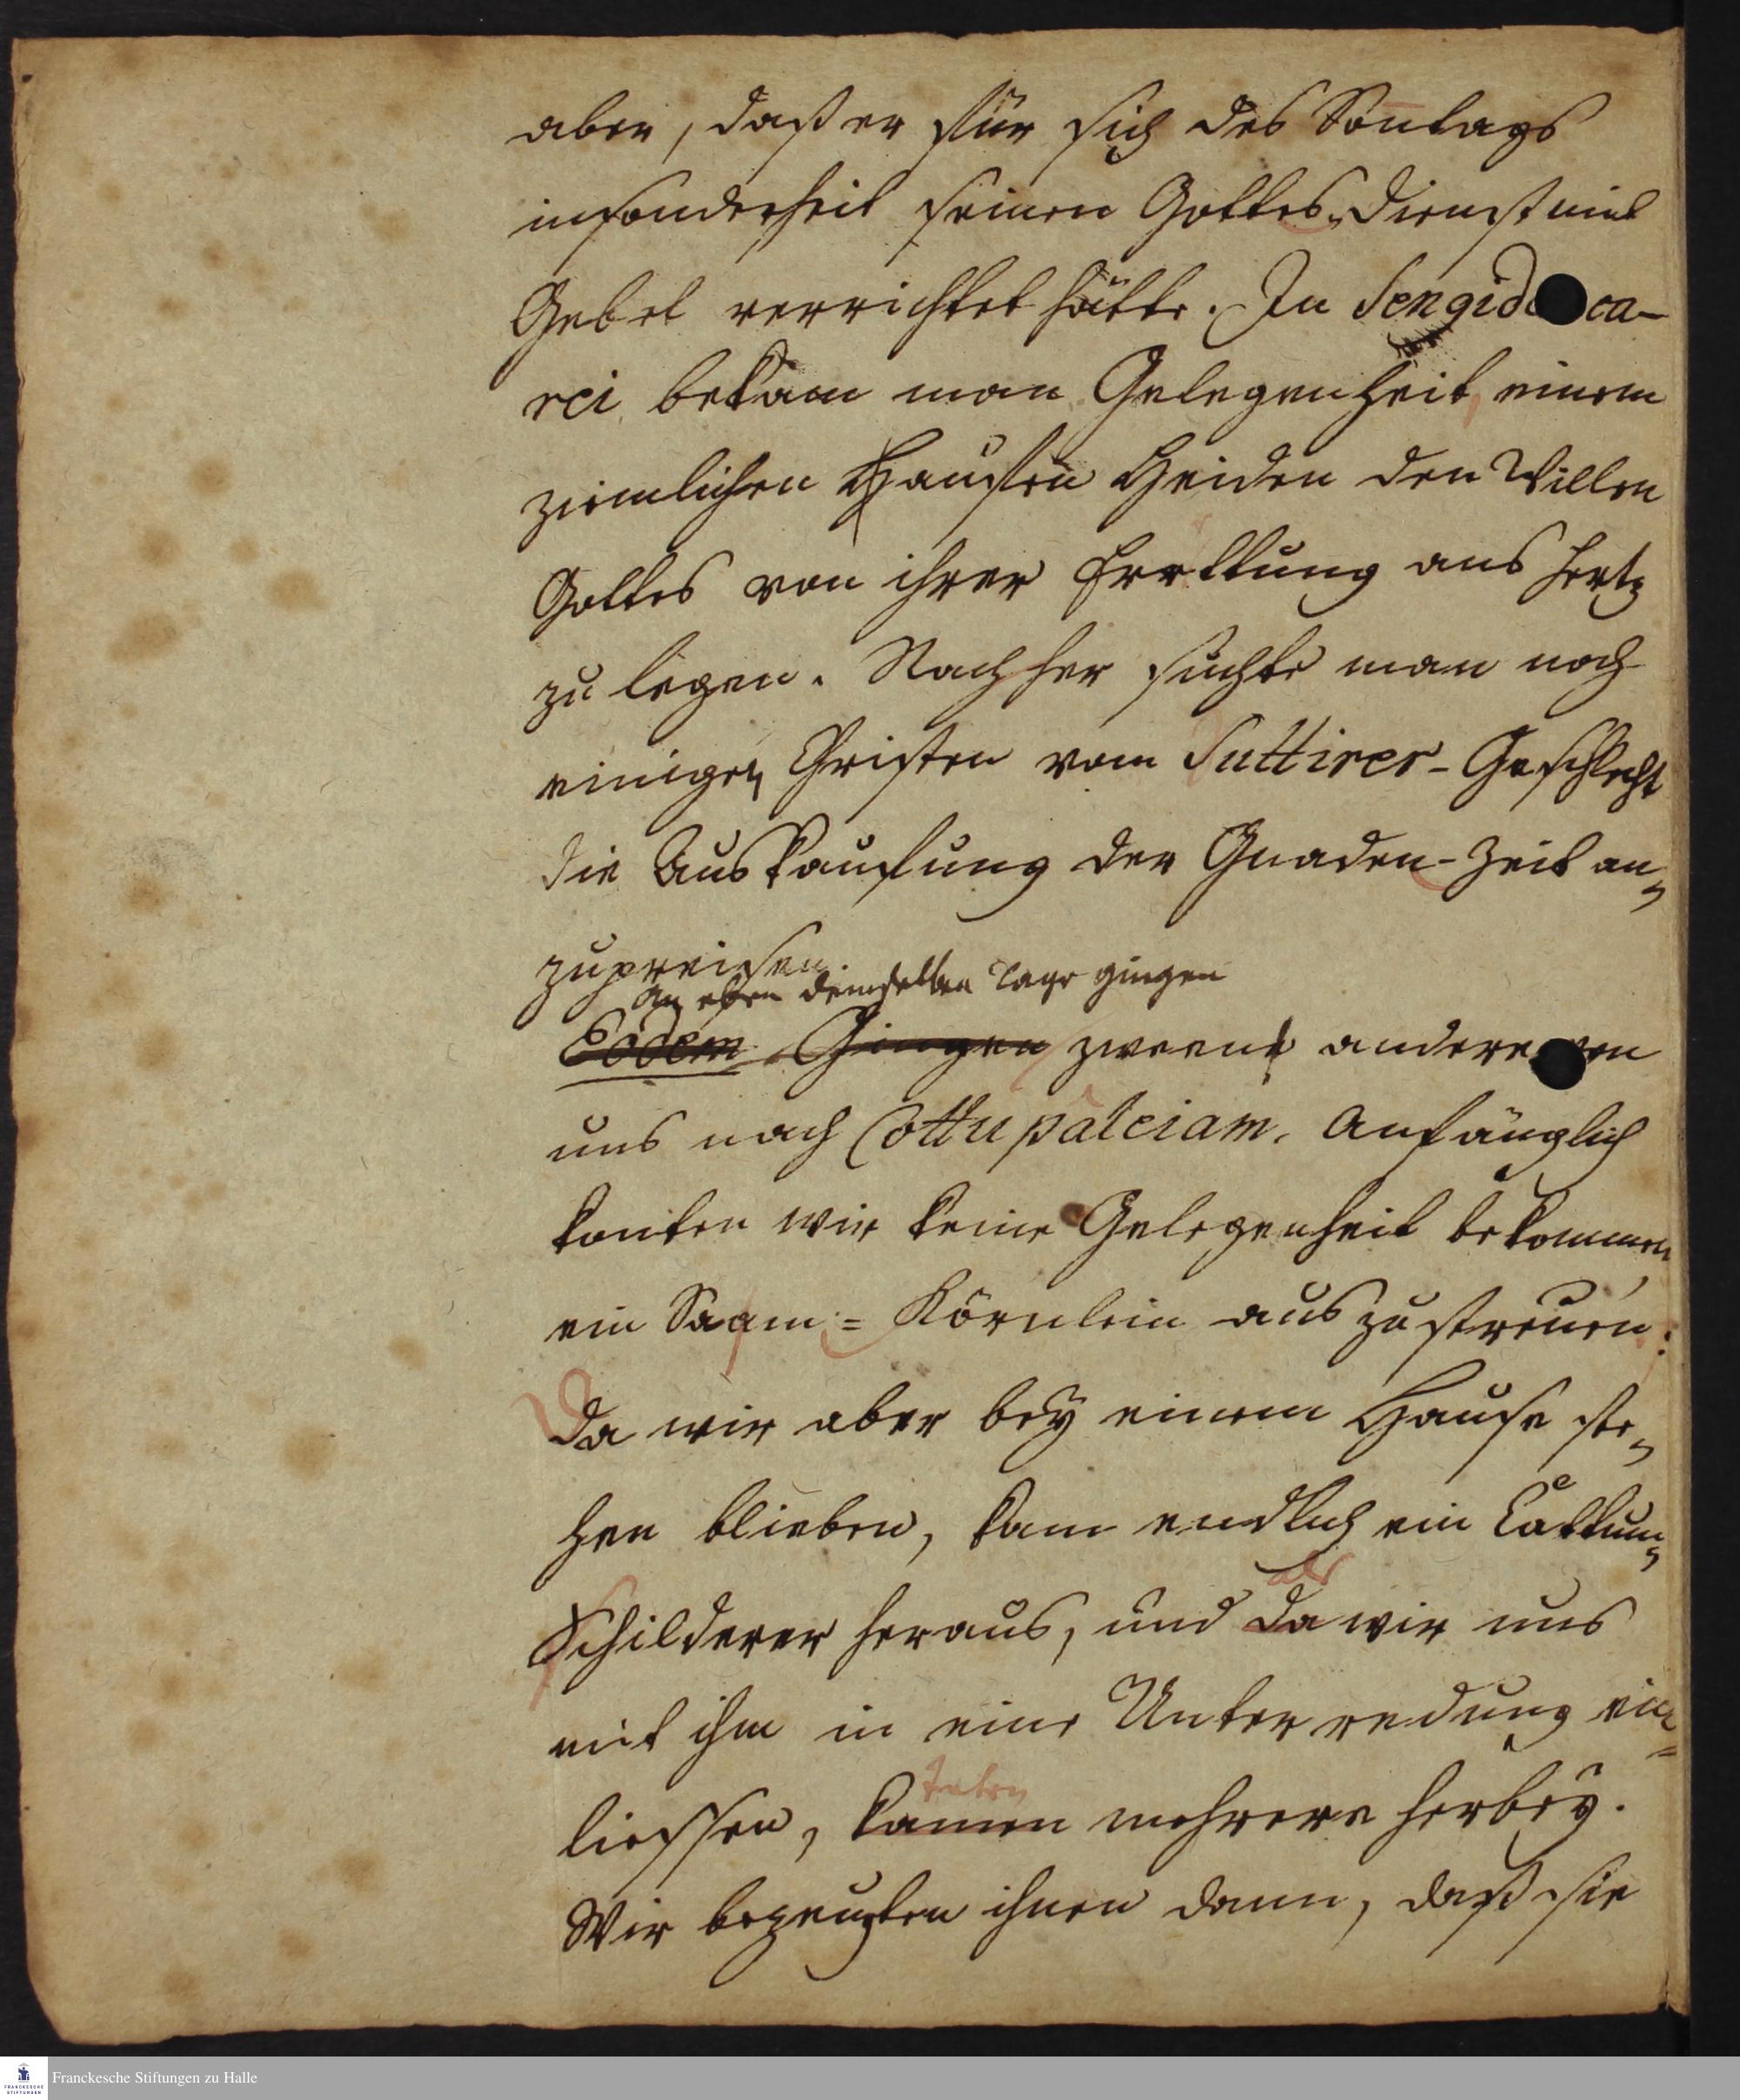 aber, daß er für sich des Soñtags
insonderheit seinen Gottes-Dienst mit
Gebet verrichtet hätte. In Sengid ca-
rei bekam man Gelegenheit, einem
ziemlichen Hauffen Heiden den Willen
Gottes von ihrer Errettung ans Hertz
zu legen. Nachher suchte man noch
einigen Christen vom Suttirer-Geschlecht
die Auskauffung der Gnaden-Zeit an-
zupreisen.
An eben demselben Tage gingen
Eodem Gingen zween andere von
uns nach Cottupáleiam. Anfänglich
konten wir keine Gelegenheit bekommen
ein Saam=Körnlein auszustreuen:
Da wir aber bey einem Hause ste-
hen blieben, kam endlich ein Cattun-
als
Schilderer heraus, und da wir uns
mit ihm in eine Unterredung ein=
traten
liessen, kamen mehrere herbey.
Wir bezeugten ihnen dann, daß sie
Franckesche Stiftungen zu Halle
FRANCKESCHE
STIFTUNGEN